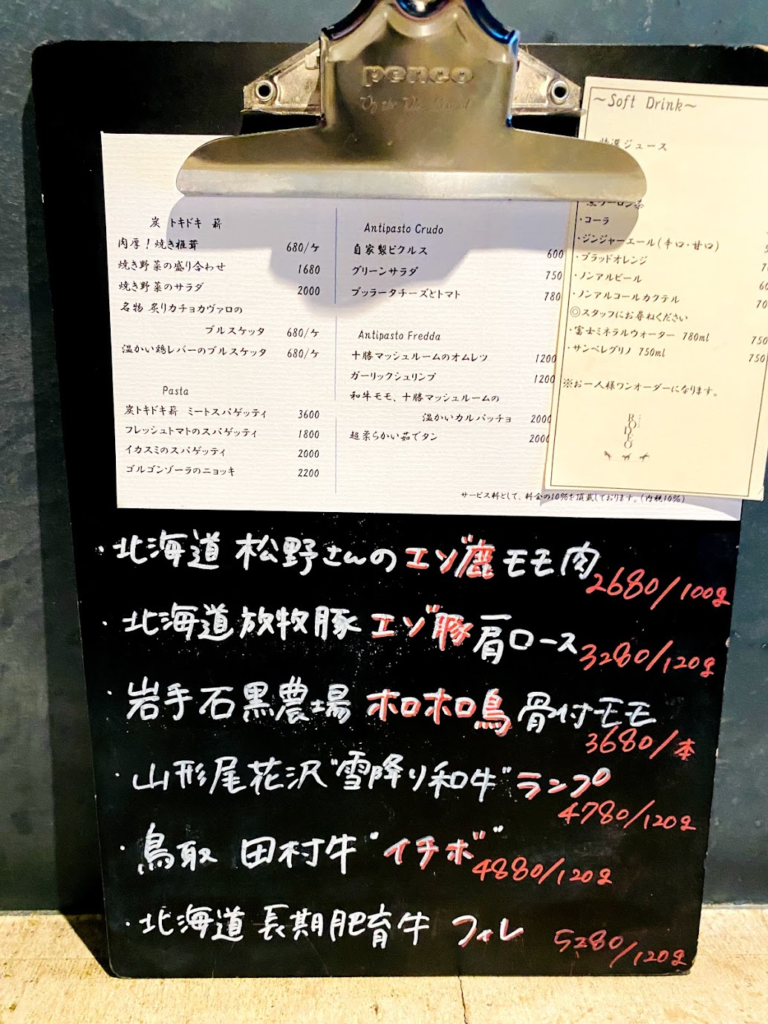 penco
炭 トキドキ 薪
肉厚！焼き椎茸 680/ケ
焼き野菜の盛り合わせ 1680
焼き野菜のサラダ 2000
名物 炙りカチョカヴァロの
ブルスケッタ 680/ケ
温かい鶏レバーのブルスケッタ 680/ケ
Pasta
炭トキドキ薪 ミートスパゲッティ 3600
フレッシュトマトのスパゲッティ 1800
イカスミのスパゲッティ 2000
ゴルゴンゾーラのニョッキ 2200
Antipasto Crudo
自家製ピクルス 600
グリーンサラダ 750
ブッラータチーズとトマト 780
Antipasto Fredda
十勝マッシュルームのオムレツ 1200
ガーリックシュリンプ 1200
和牛モモ、十勝マッシュルームの
温かいカルパッチョ 2000
超柔らかい茹でタン 2000
サービス料として、料金の10%を頂戴しております。(内税10%)
～Soft Drink～
ジュース
・コーラ
・ジンジャーエール(辛口・甘口)
・ブラッドオレンジ
・ノンアルビール
・ノンアルコールカクテル
◎スタッフにお尋ねください
・富士ミネラルウォーター 780ml 750
・サンペレグリノ 750ml 750
※お一人様ワンオーダーになります。
RODEO
・北海道 松野さんのエゾ鹿モモ肉
2680/100g
・北海道放牧豚 エゾ豚 肩ロース
3280/120g
・岩手石黒農場 ホロホロ鳥 骨付モモ
3680/本
・山形尾花沢"雪降り和牛"ランプ
4780/120g
・鳥取 田村牛"イチボ"
4880/120g
・北海道 長期肥育牛 フィレ
5280/120g